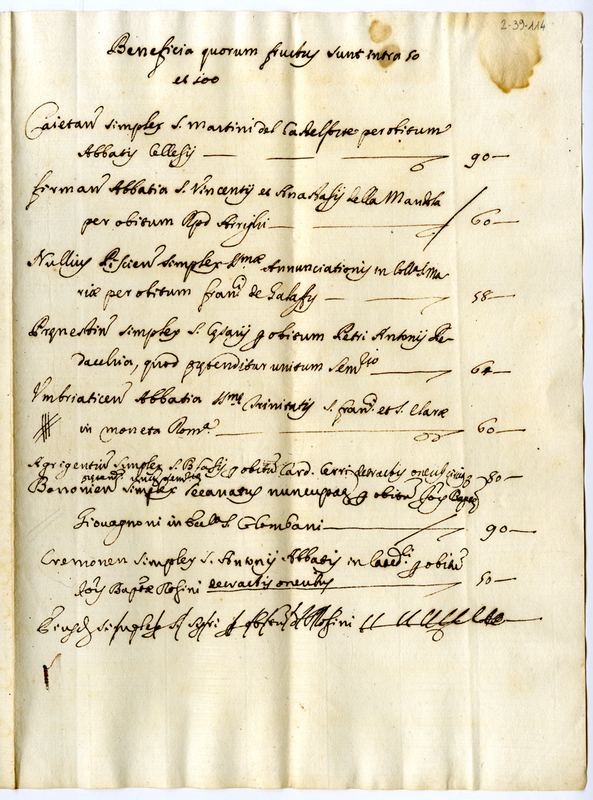 2-39-114
Beneficia quorum fructus sunt intra 50
et 100
Caietan simplex S. Martini del Castelforte per obitum
Abbatis Cellesij 90
firman Abbatia S. Vincentij et Anastasij della Mandola
per obitum Rpd Arrighi 60
Nullius simplex Ssmæ Annunciationis in Colla S. Ma
riæ per obitum Franci de 58
Prenestin simplex S. p obitum Petri Antonij
quod prætenditur unitum Semrio 64
Umbriaticen Abbatia Ssmæ Trinitatis S. Franci et S. Claræ
in moneta Roma 60
Agrigentin simplex S. Blasij p obitu Card. Cerri detractis oneribus 80
Bononien simplex Decanatus nuncupat p obitu Jois Baptæ
Giovagnoni in Eccla S. Columbani 90
Cremonen simplex S. Antonij Abbatis in p obitu
Jois Baptæ Rosini detractis oneribus 50
simplex S. p obitu Rosini